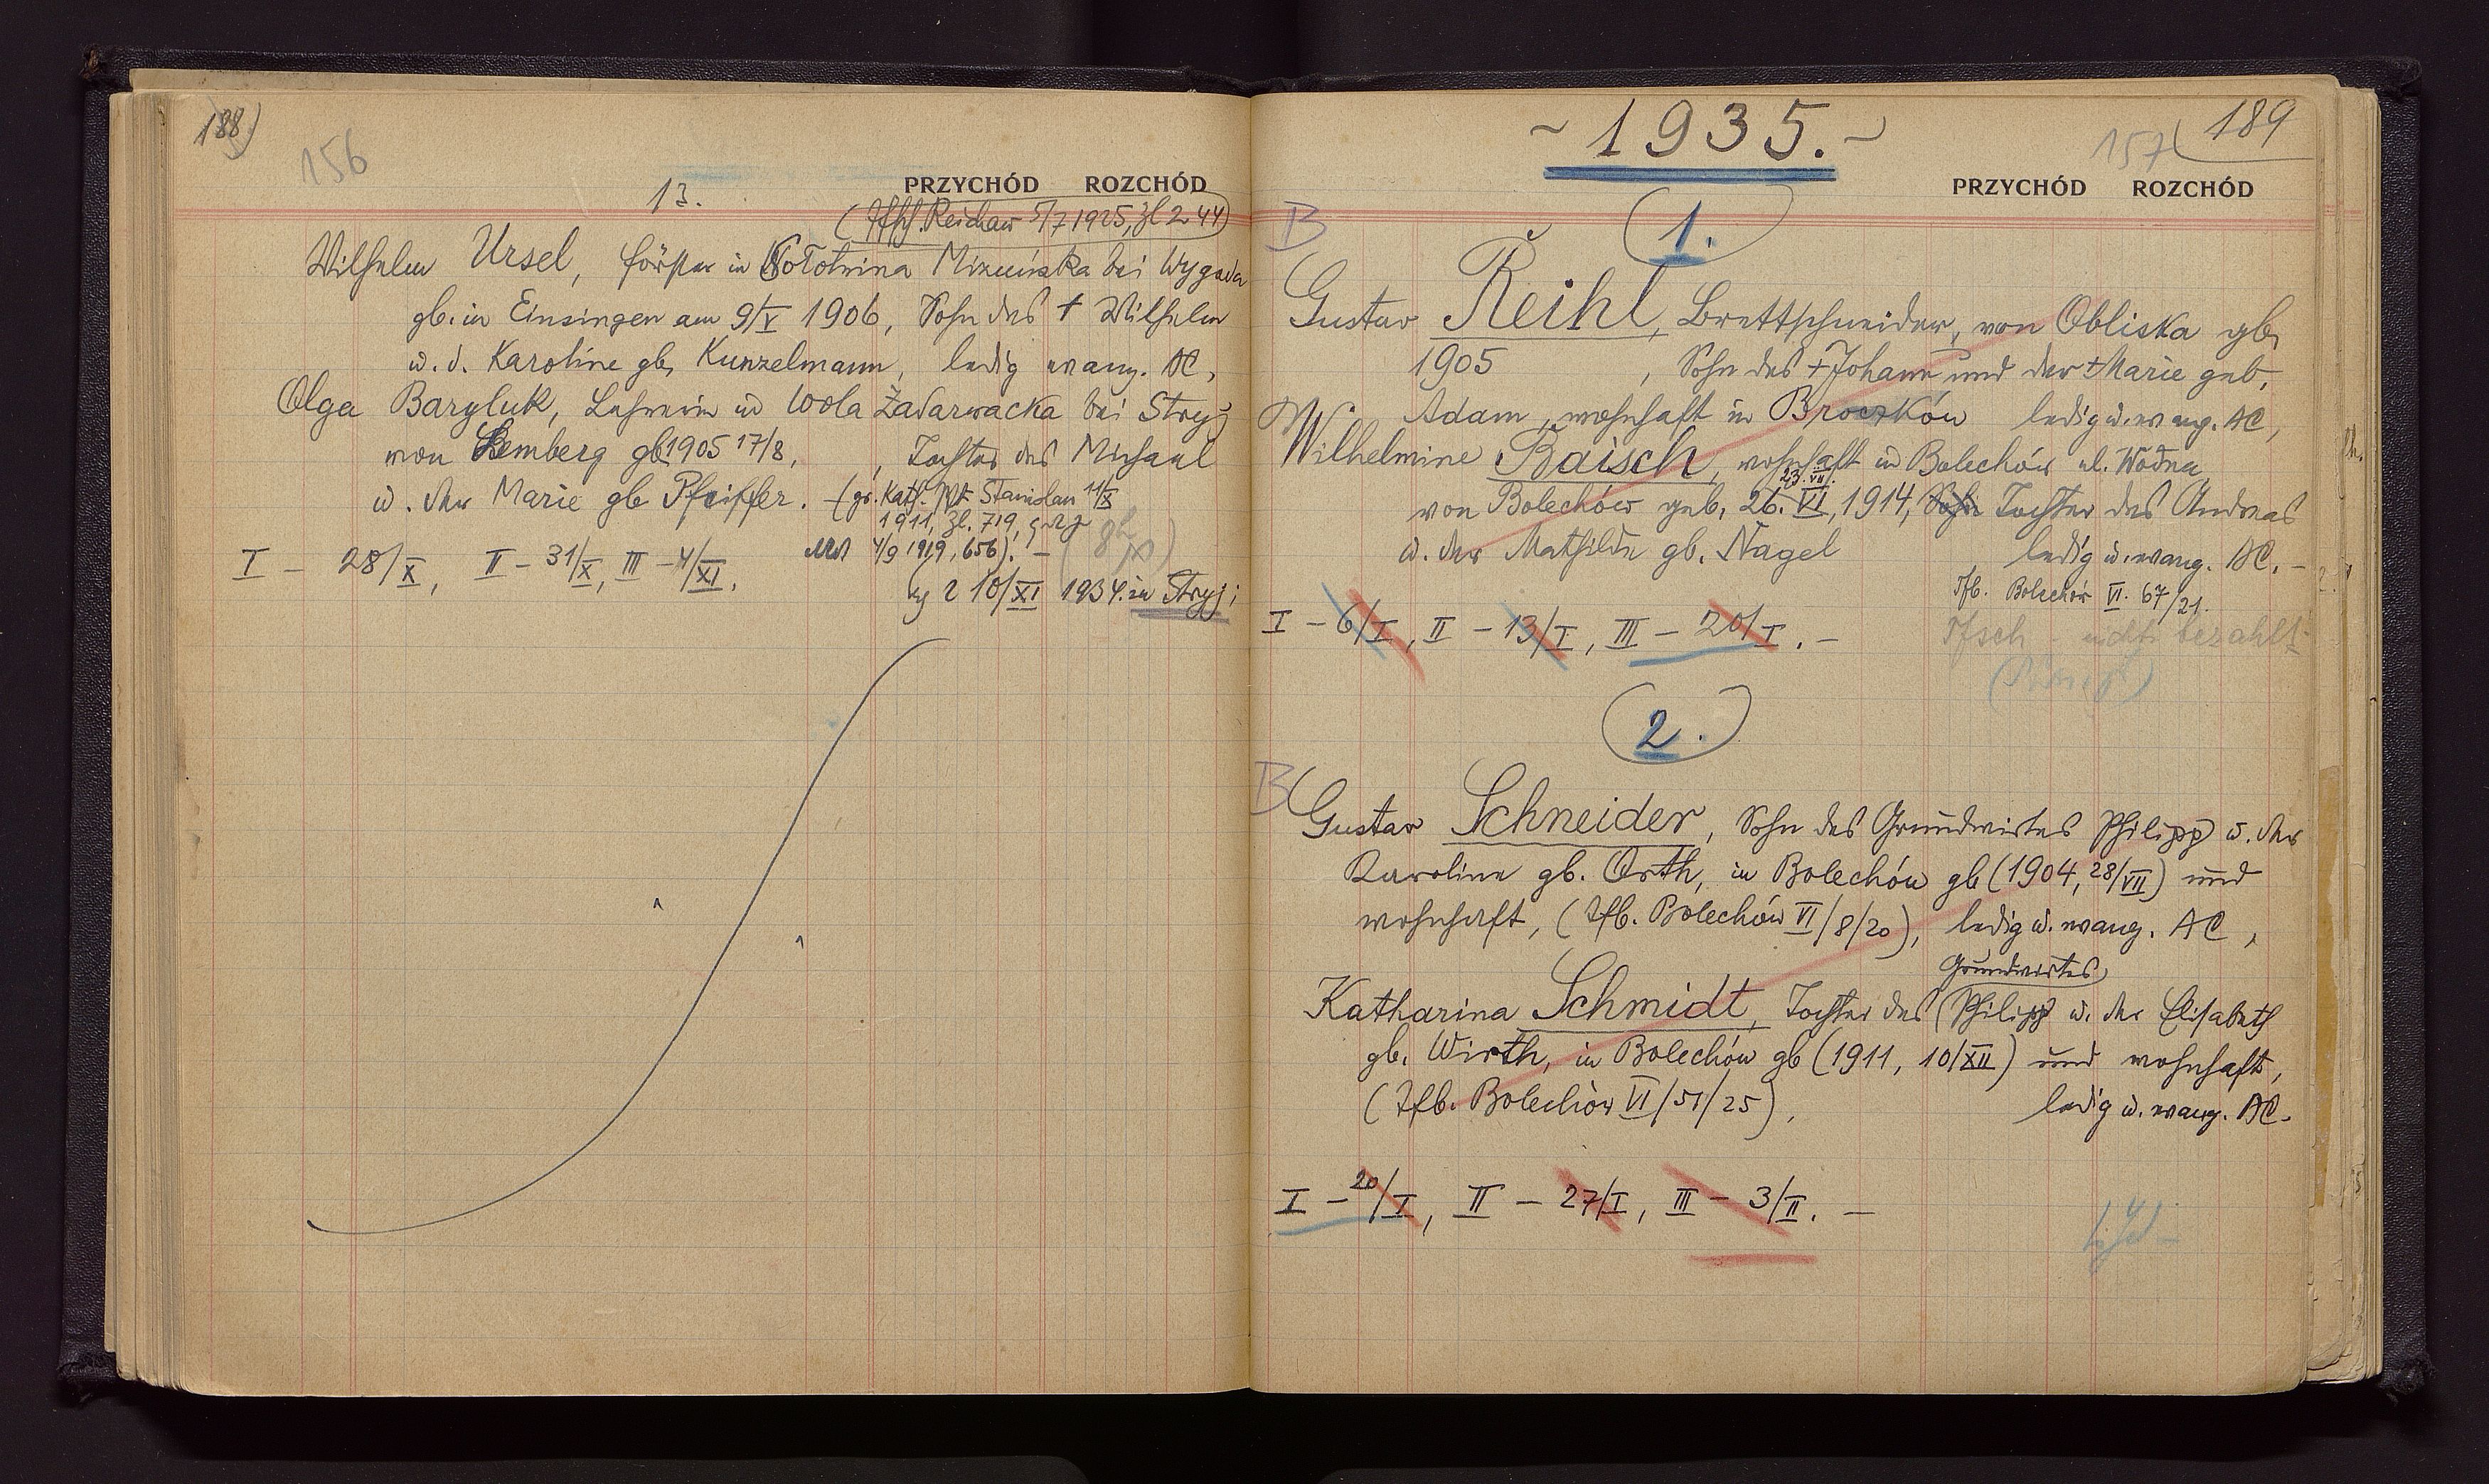 188)
156
13.
PRZYCHÓD ROZCHÓD
(Tfsch. Reichau 5/7 1925, Zl 244)
Wilhelm Ursel, Förster in Sołotwina Mizuńska bei Wygoda
gb. in Einsingen am 9/V 1906, Sohn des † Wilhelm
u. d. Karoline gb, Kunzelmann, ledig evang. AC,
Olga Baryluk, Lehrerin in Wola Zadarwacka bei Stryj
von Lemberg gb 1905 17/8, , Tochter des Michael
u. der Marie gb Pfeiffer. (gr. Kath. Stanislau 11/X
1911, Zl. 719,
4/9 1919, 656). –
I – 28/X, II – 31/X, III – 4/XI.
10/XI 1934. in Stryj;
~ 1935. ~
157 189
PRZYCHÓD ROZCHÓD
B
1.
Gustav Reihl, Brettschneider, von Obliska gb,
1905 , Sohn des † Johann und der † Marie geb,
Adam, wohnhaft in Broczków ledig u. evang. AC,
Wilhelmine Baisch, wohnhaft in Bolechów ul. Wodna
23. VII.
von Bolechów geb, 26. VI, 1914, Sohn Tochter des Andreas
u. der Mathilde gb. Nagel ledig u. evang. AC. –
Tfb. Bolechów VI. 67/21.
I – 6/I, II – 13/I, III – 20/I. –
Tfsch nicht bezahlt
2.
B
Gustav Schneider, Sohn des Grundwirtes Philipp u. der
Karoline gb. Orth, in Bolechów gb (1904, 28/VII) und
wohnhaft, (Tfb. Bolechów VI/8/20), ledig u. evang. AC,
Grundwirtes
Katharina Schmidt, Tochter des Philipp u. der Elisabeth
gb. Wirth, in Bolechów gb (1911, 10/XII) und wohnhaft,
(Tfb. Bolechów VI/51/25), ledig u. evang. AC.
I – 20/I, II – 27/I, III – 3/II. –